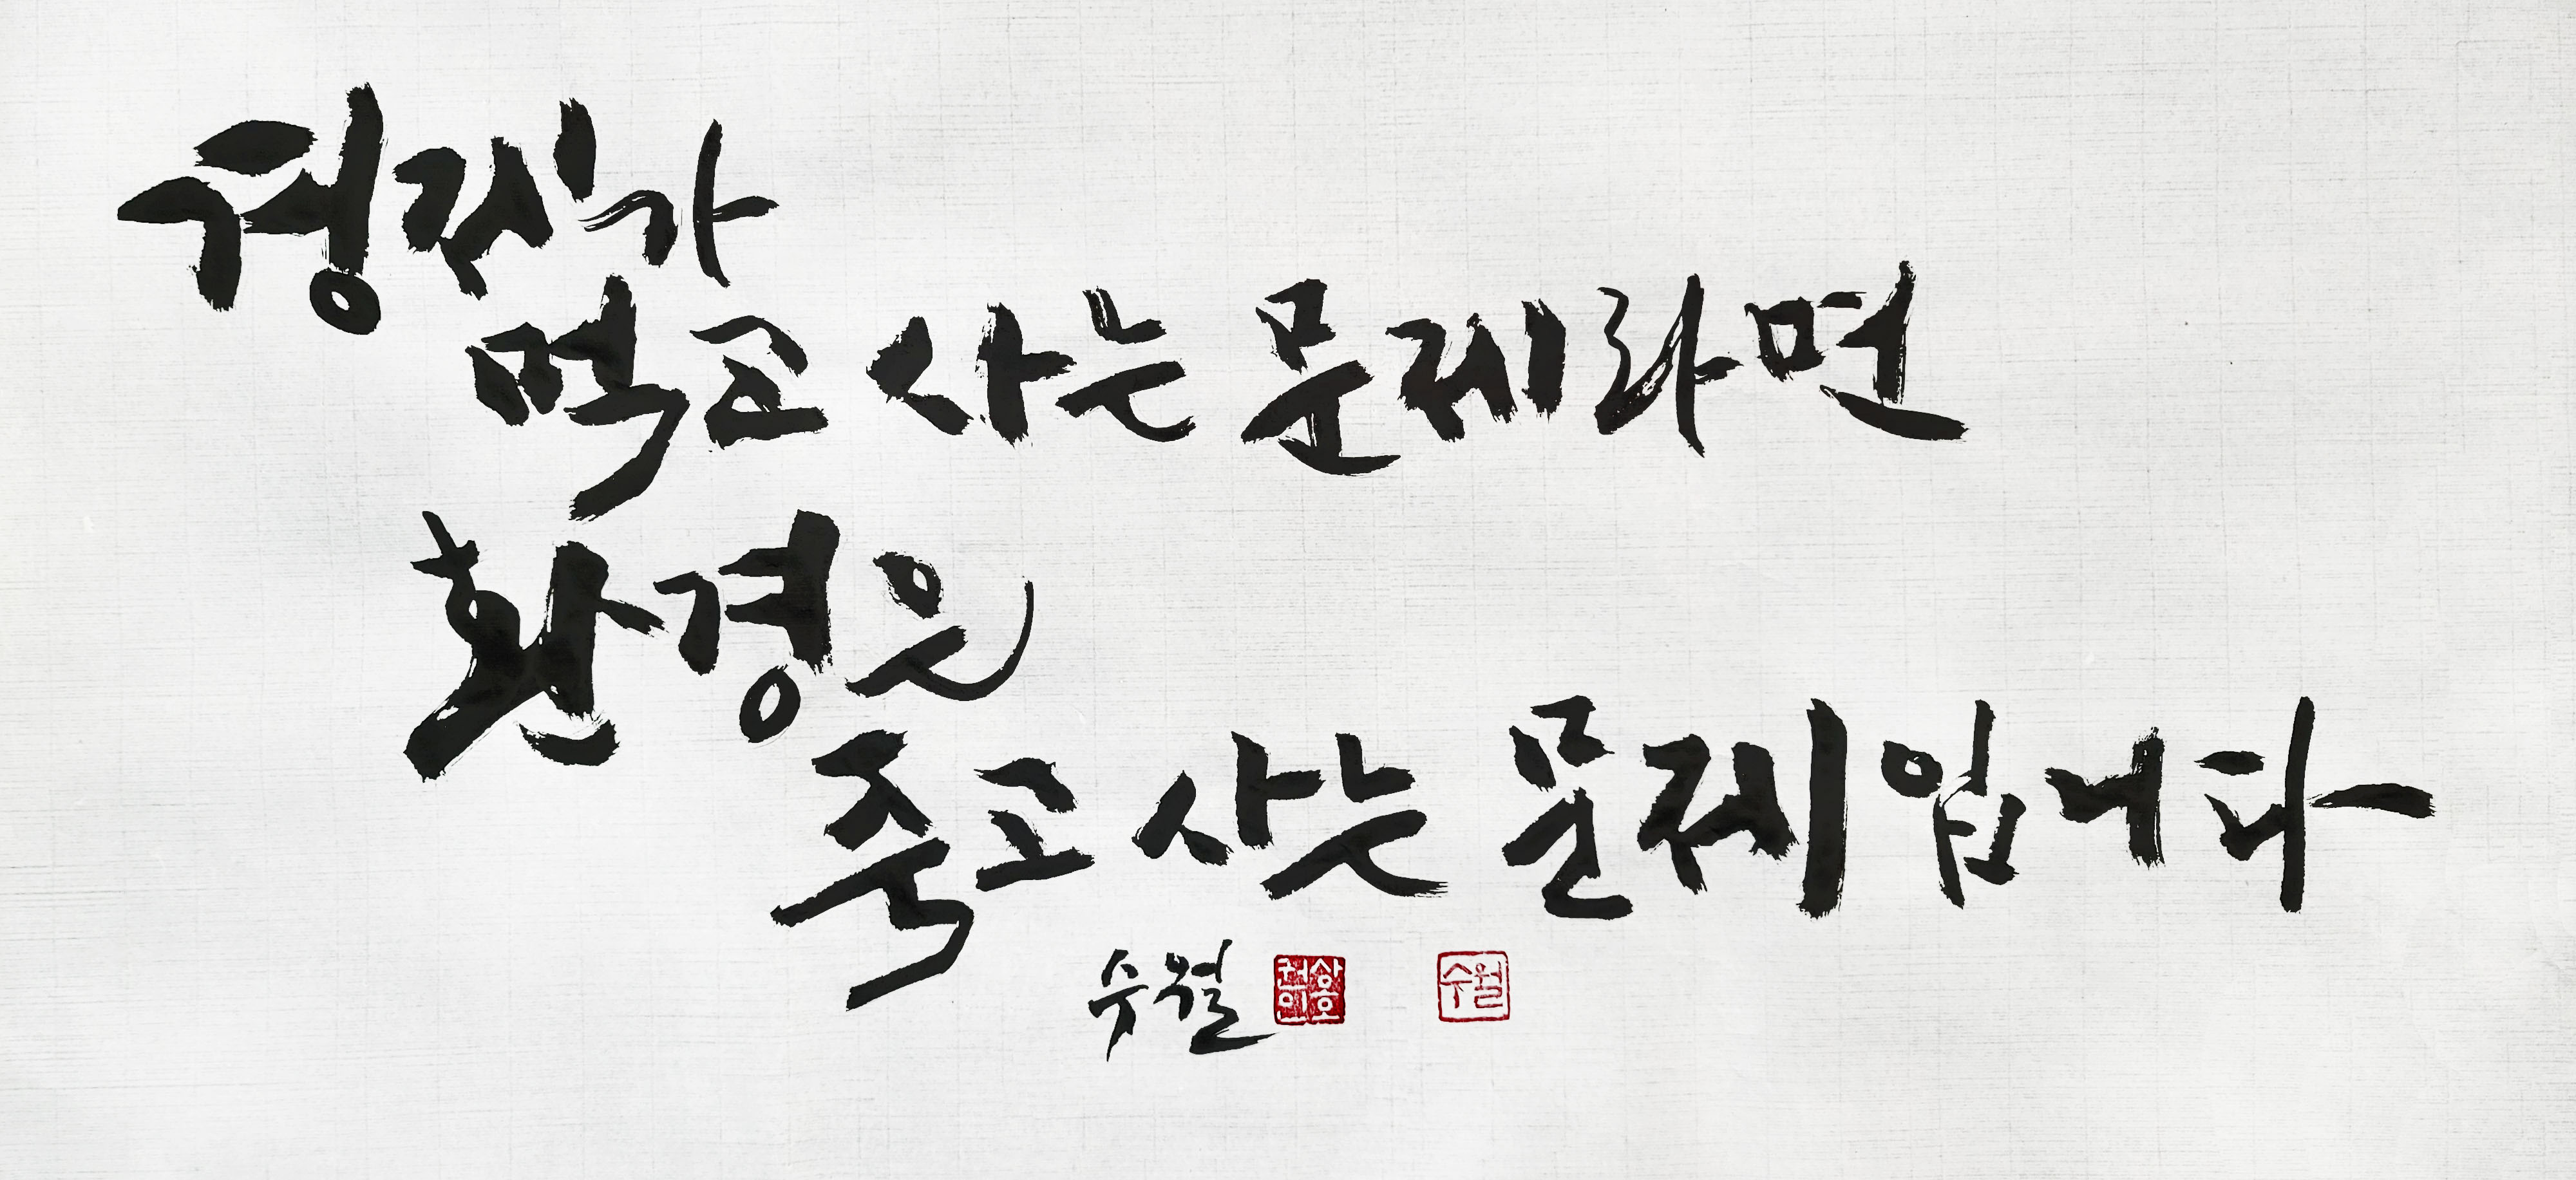 경제가
먹고 사는 문제라면
환경은
죽고 사는 문제입니다
수월
권상호인
수월